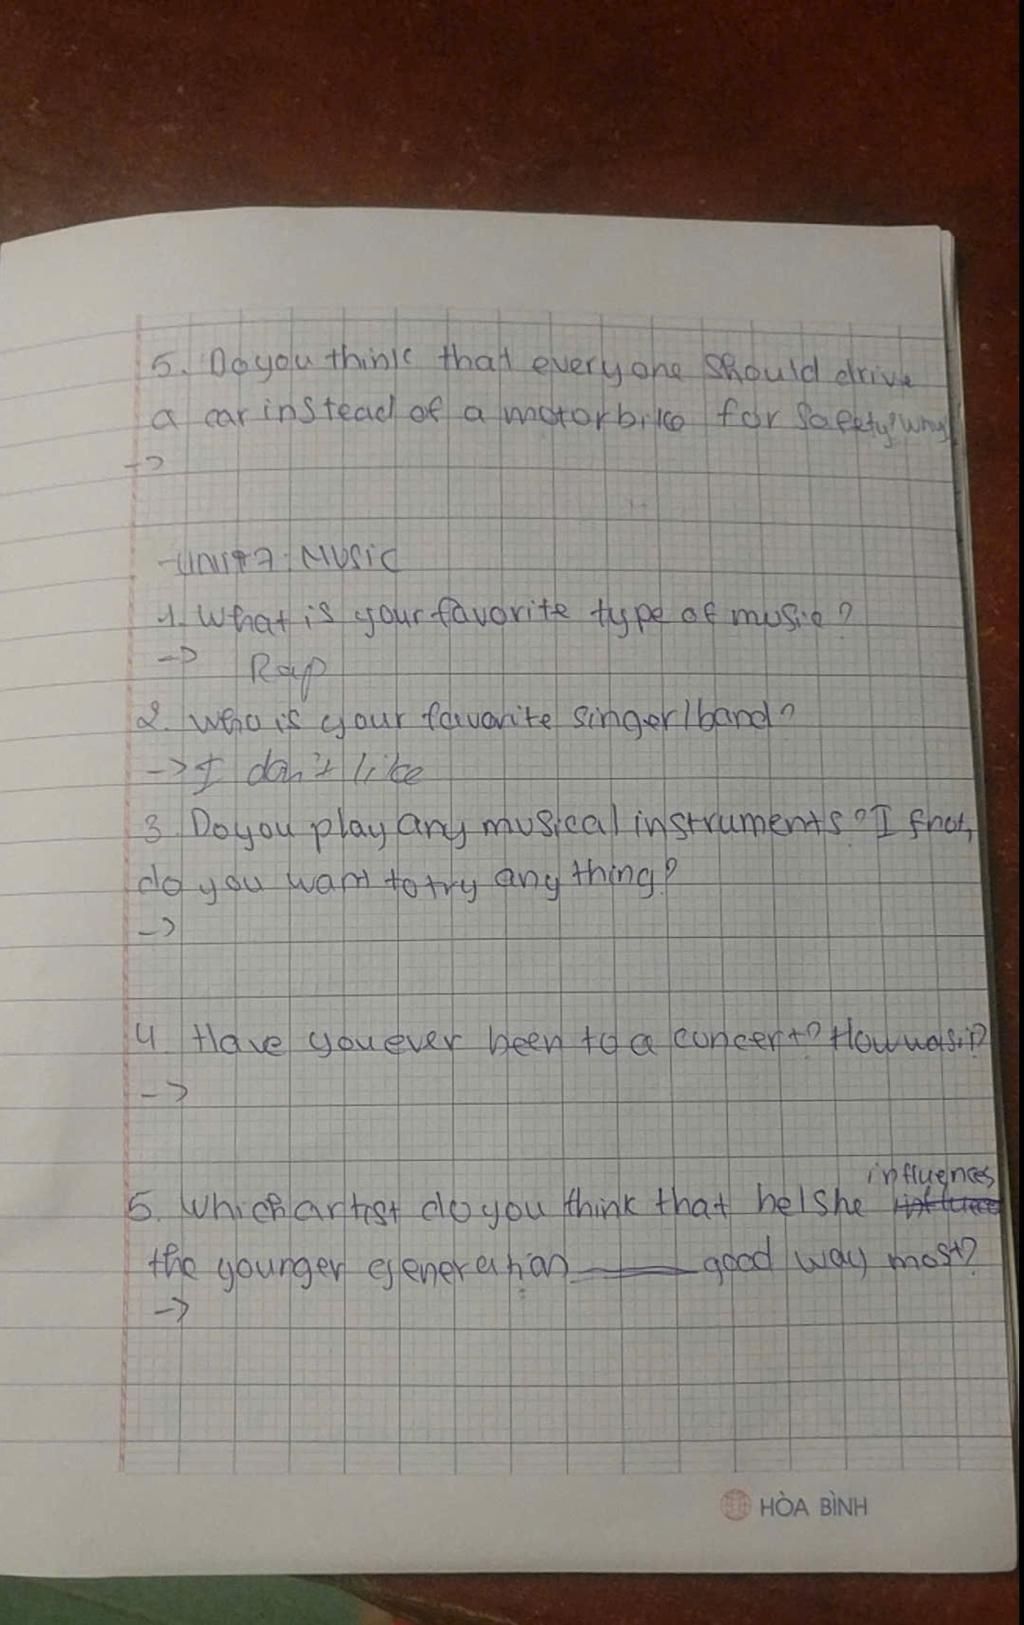 5. Do you think that everyone should drive
a car instead of a motorbike for safety? why
->
-UNIT 7: MUSIC
1. What is your favorite type of music?
-> Rap
2. Who is your favorite singer/band?
-> I don't like
3. Do you play any musical instruments? If not,
do you want to try any thing?
->
4. Have you ever been to a concert? How was it?
->
influences
5. Which artist do you think that he/she
the younger generation good way most?
->
HÒA BÌNH